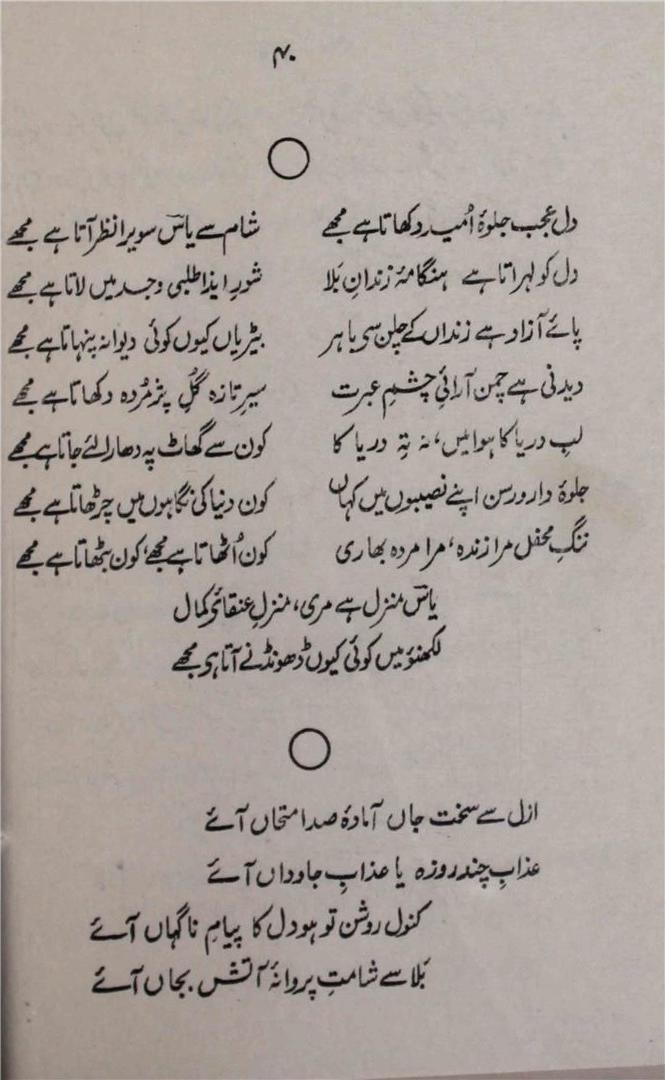 ۴۰
دل عجب جلوۂ اُمید دکھاتا ہے مجھے شام سے یاسؔ سویرا نظر آتا ہے مجھے
دل کو لہراتا ہے ہنگامۂ زندانِ بَلا شورِ ایذا طلبی وجد میں لاتا ہے مجھے
پائے آزاد ہے زنداں کے چلن سی باہر بیڑیاں کیوں کوئی دیوانہ پنہاتا ہے مجھے
دیدنی ہے چمن آرائیِ چشمِ عبرت سیرِ تازہ گُلِ پژمُردہ دکھاتا ہے مجھے
لبِ دریا کا ہوا میں، نہ تہِ دریا کا کون سے گھاٹ پہ دھارا لئے جاتا ہے مجھے
جلوۂ دار و رسن اپنے نصیبوں میں کہاں کون دنیا کی نگاہوں میں چڑھاتا ہے مجھے
ننگِ محفل مرا زندہ، مرا مردہ بھاری کون اُٹھاتا ہے مجھے، کون بٹھاتا ہے مجھے
یاسؔ منزل ہے مری، منزلِ عنقائے کمال
لکھنؤ میں کوئی کیوں ڈھونڈنے آتا ہو مجھے
ازل سے سخت جاں آمادۂ صد امتحاں آئے
عذابِ چند روزہ یا عذابِ جاوداں آئے
کنول روشن تو ہو دل کا پیامِ ناگہاں آئے
بَلا سے شامتِ پروانۂ آتش بجاں آئے